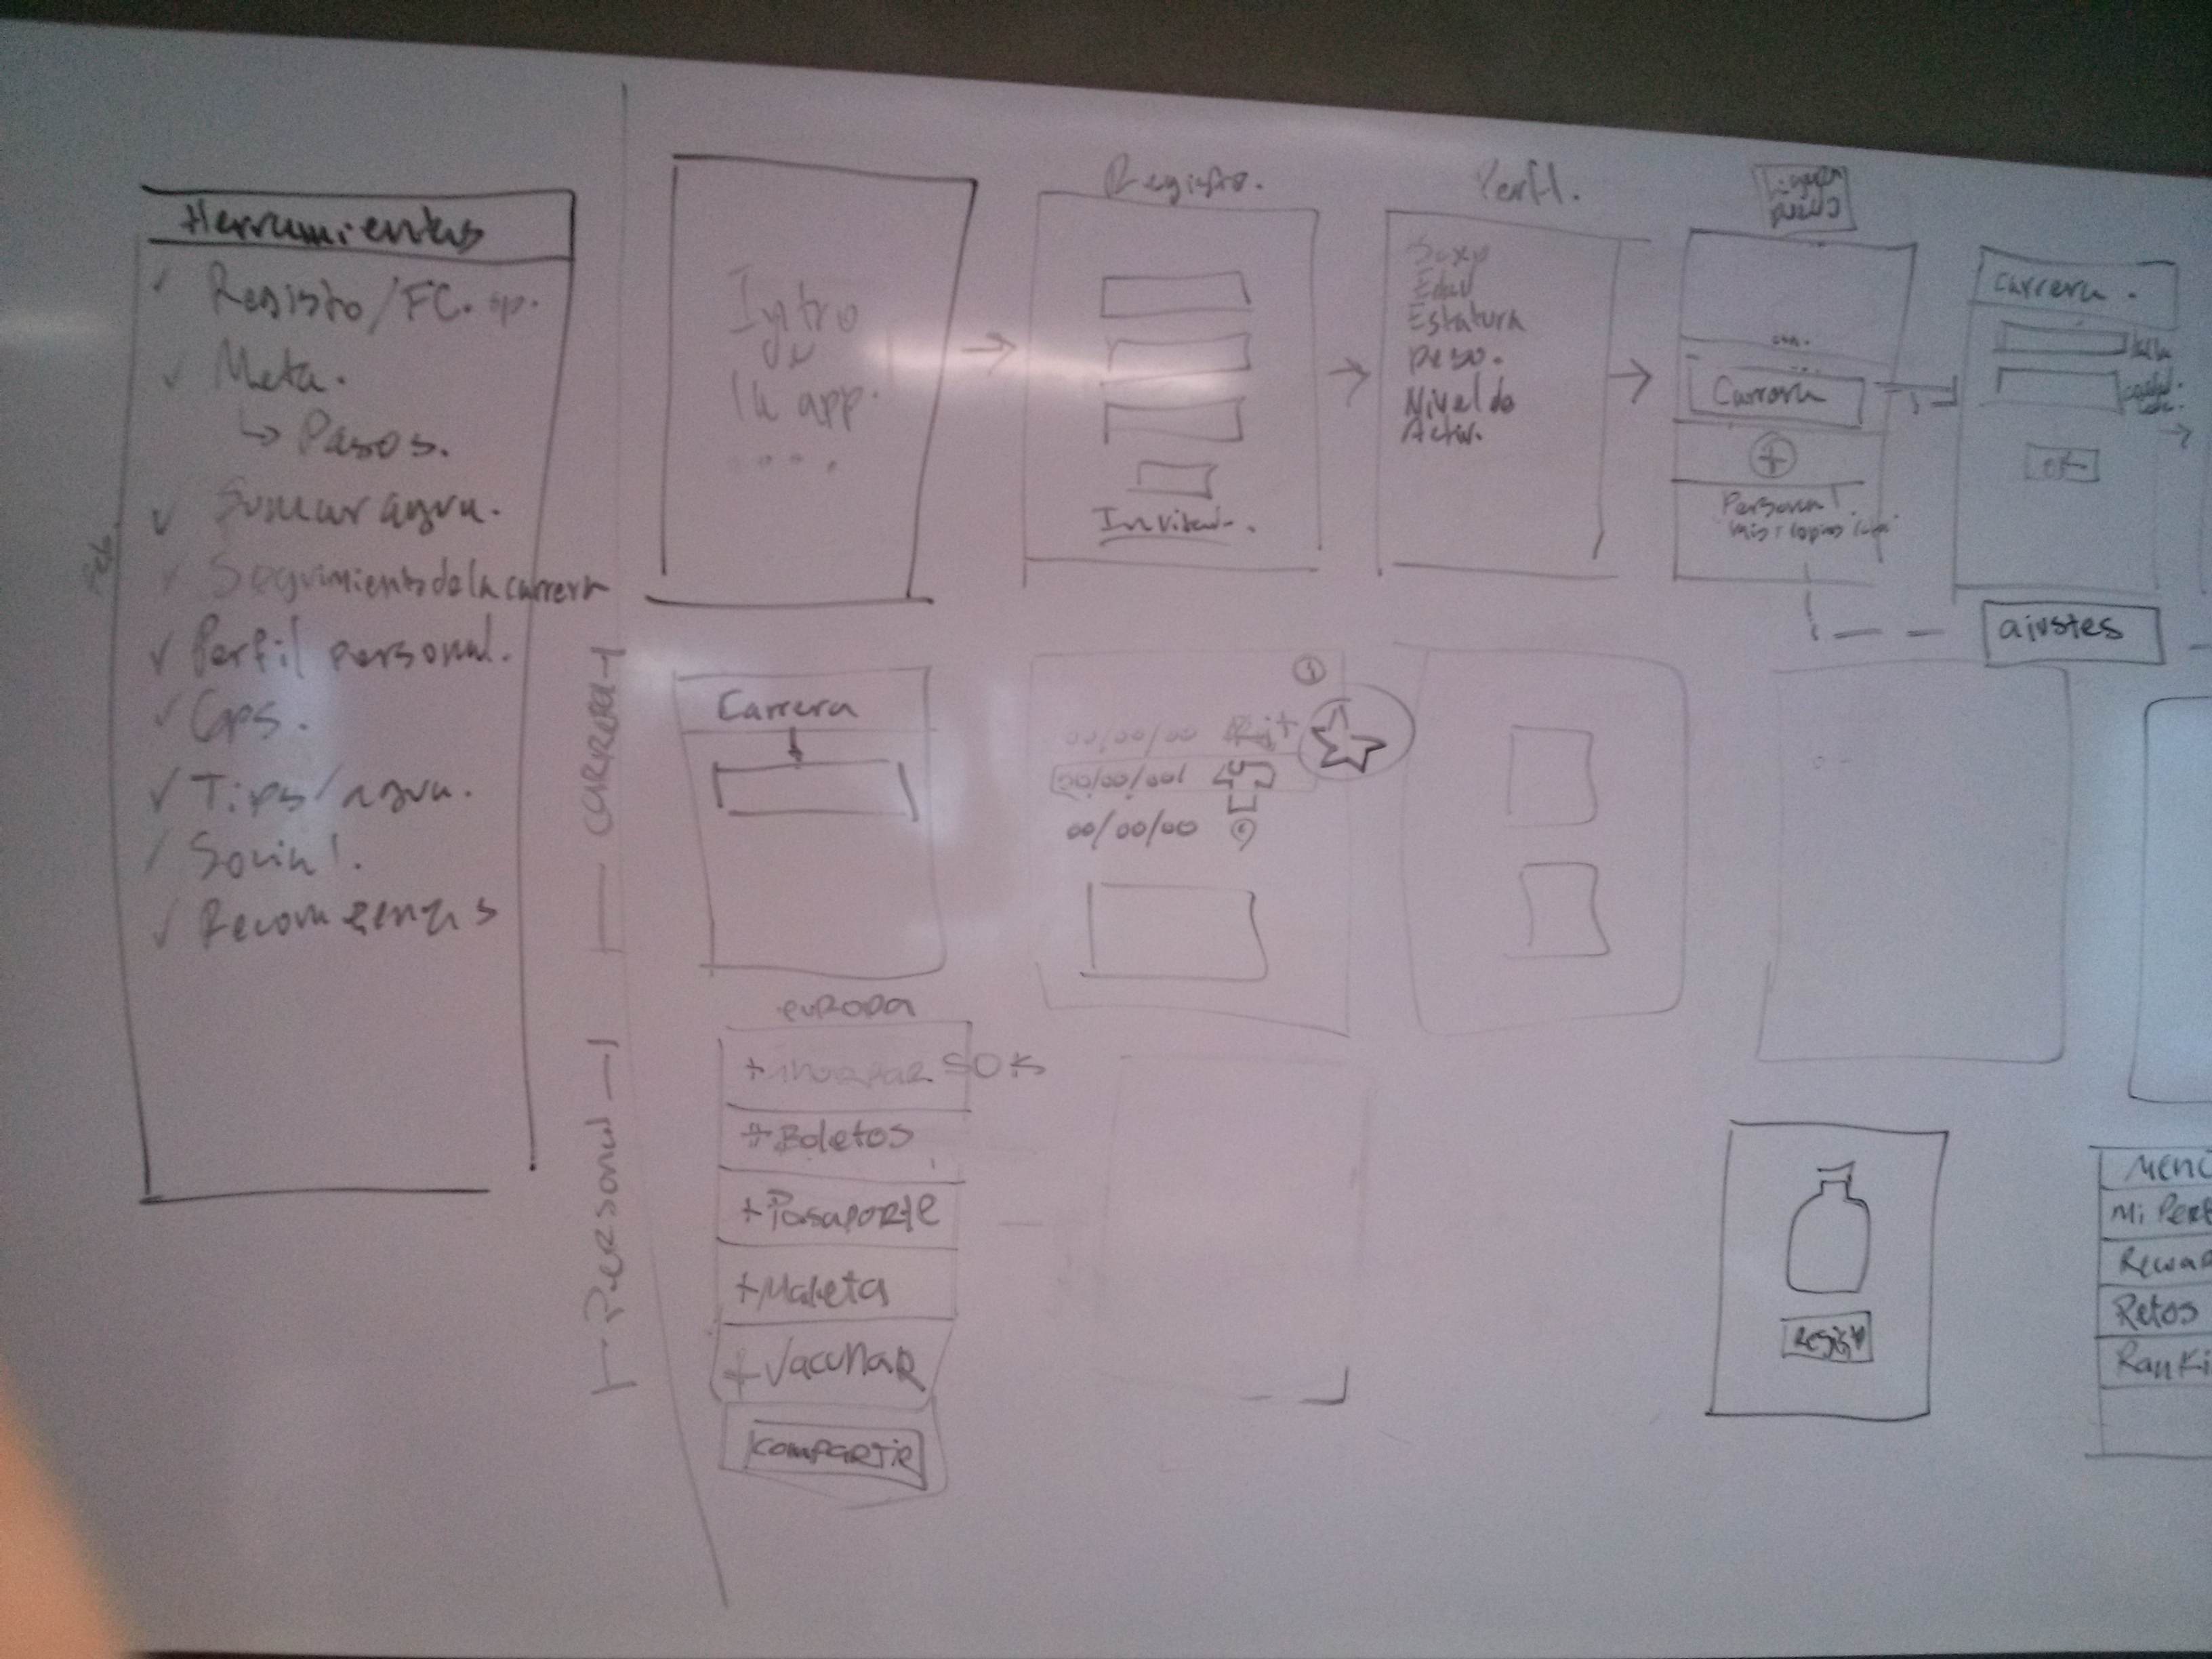 Herramientas
Registo/FC. sp.
Meta.
↳ Pasos.
Sumar agua.
Seguimiento de la carrera
Perfil personal.
Gps.
Tips/agua.
Social.
Intro
la app.
Registro.
Perfil.
Sexo
Edad
Estatura
peso.
Nivel de
Activ.
Carrera
+
Personal.
Carrera.
OK
ajustes
CARRERA
Carrera
00/00/00
00/00/00
00/00/00
Personal
euROPA
+ 50K
+Boletos
+Pasaporte
+Maleta
+VacuNaR
compartir
Mi Perf
Rewar
Retos
Ranki